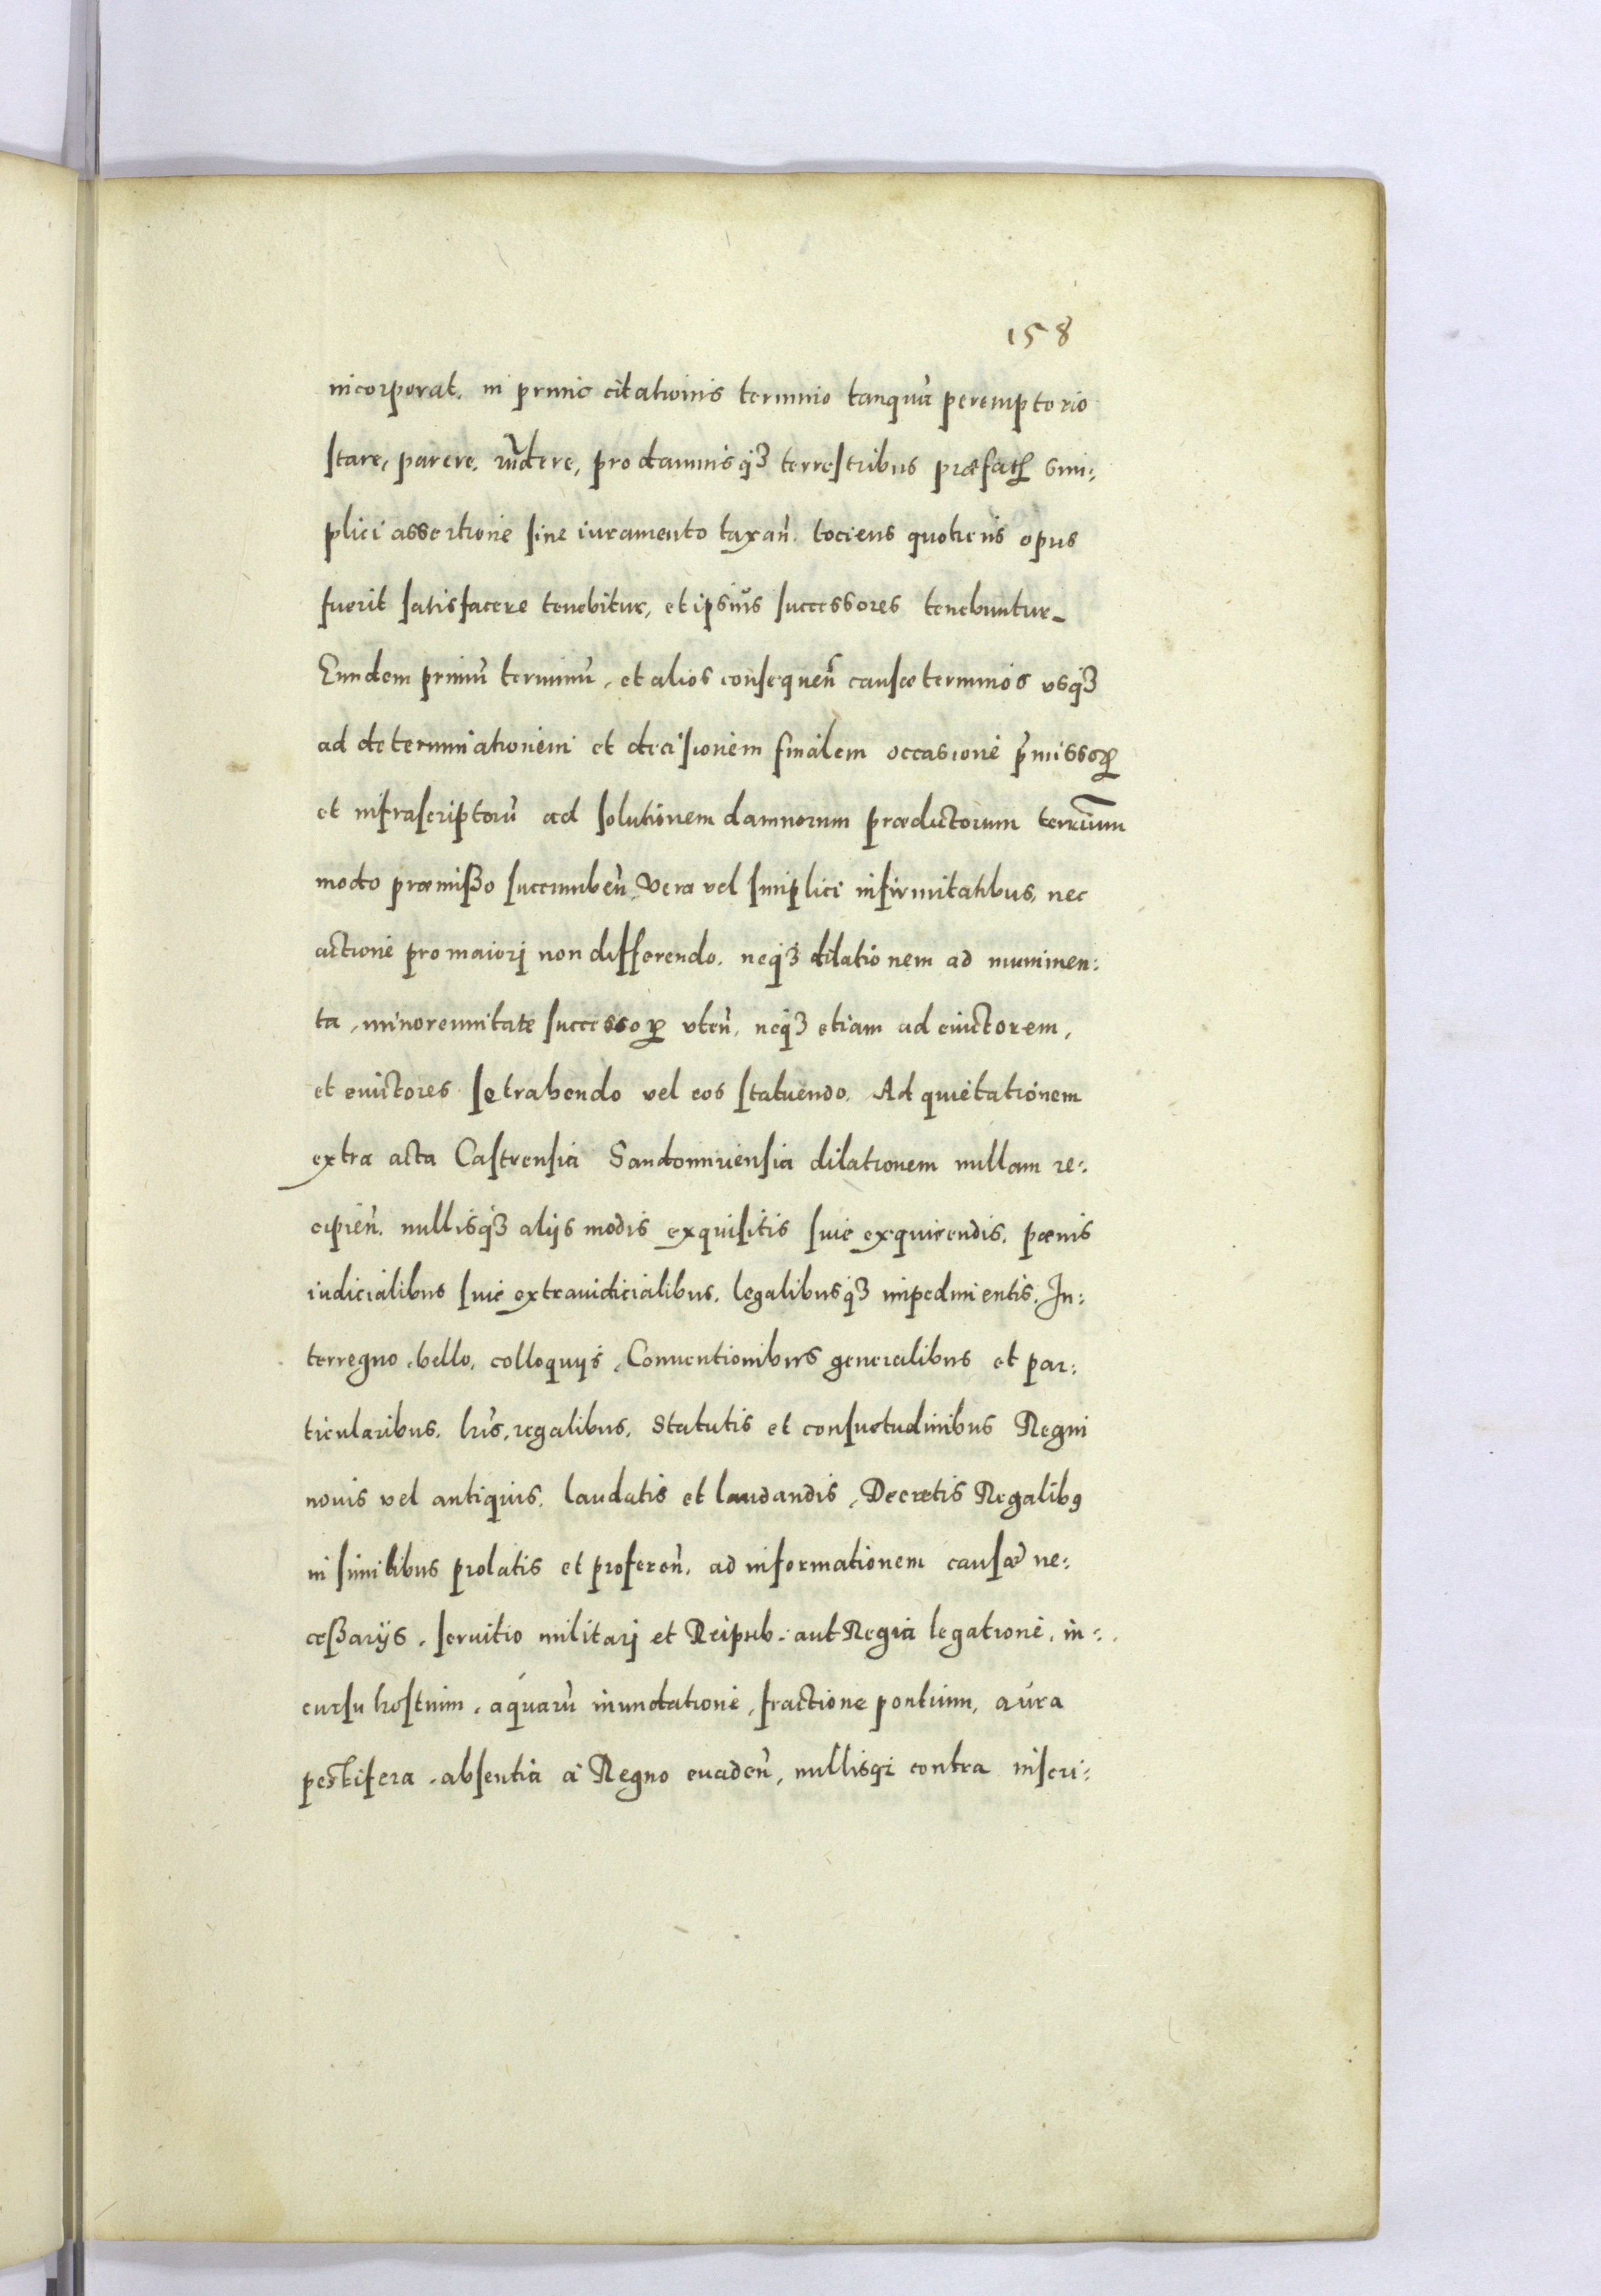 158
incorporat. in primo citationis termino tanquã peremptorio
stare, parere, rñdere, pro damnisq3 terrestribus præfatis sim:
plici assertione sine iuramento taxañ. tociens quotiens opus
fuerit satisfacere tenebitur, et ipsius successores tenebuntur.
Eundem primũ terminũ, et alios consequeñ causæ terminos vsq3
ad determinationem et decisionem finalem occasione p̃missoꝝ
et infrascriptorũ ad solutionem damnorum prædictorum terrũm
modo præmißo succumbeñ, Vera vel simplici infirmitatibus, nec
actione pro maiori non differendo. neq3 dilationem ad munimen:
ta, minorennitate successoꝝ vteñ, neq3 etiam ad euictorem,
et euictores se trahendo vel eos statuendo. Ad quietationem
extra acta Castrensia Sandomiriensia dilationem nullam re:
cipieñ. nullisq3 alijs modis exquisitis siue exquirendis. pœnis
iudicialibus siue extraiudicialibus. legalibusq3 impedimentis. In:
terregno, bello, colloquijs, Conuentionibus generalibus et par:
ticularibus. lr̃is, regalibus, Statutis et consuetudinibus Regni
nouis vel antiquis. laudatis et laudandis, Decretis Regalibꝰ
in similibus prolatis et profereñ. ad informationem causæ ne:
ceßarijs. seruitio militarj et Reipub. aut Regia legatione. in:
cursu hostium. aquarũ inundatione, fractione pontium, aura
pestifera. absentia à Regno euadeñ, nullisq; contra inscri: